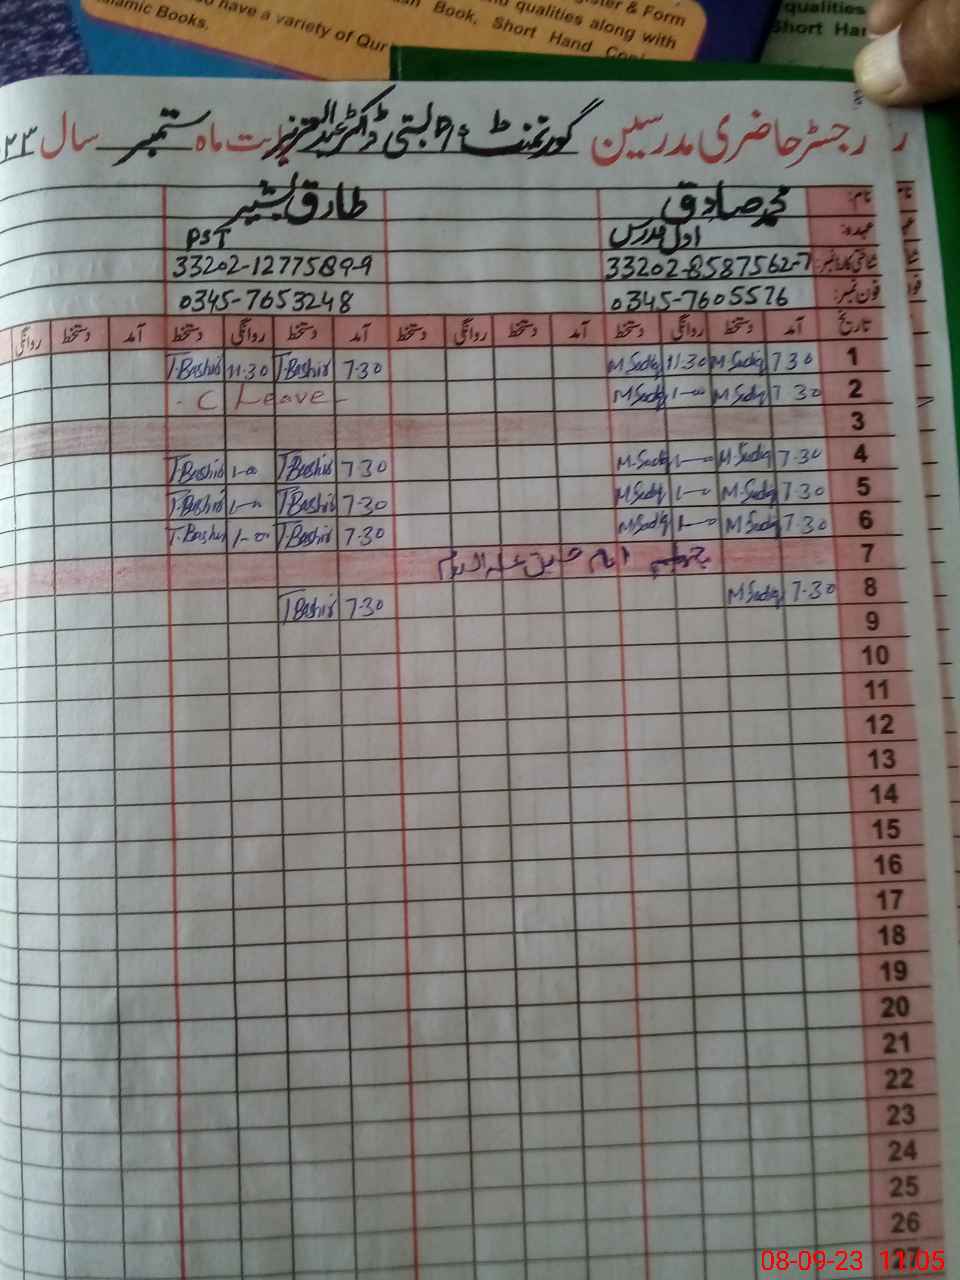 ister & Form
have a variety of Qur
Book, Short Hand
qualities along with
lamic Books.
qualities
Short Har
رجسٹر حاضری مدرسین گورنمنٹ بستی ڈاکٹر عبدالعزیز بابت ماہ ستمبر سال ۲۳
نام: محمد صادق طارق بشیر
عہدہ: اول مدرس PST
شناختی کارڈ نمبر: 33202-8587562-7 33202-1277589-9
فون نمبر: 0345-7605576 0345-7653248
تاریخ آمد دستخط روانگی دستخط آمد دستخط روانگی دستخط آمد دستخط روانگی دستخط آمد دستخط روانگی
1 7 30 M Sadiq 11.30 M Sadiq 7-30 T.Bashir 11.30 T.Bashir
2 7 30 M Sadiq 1-00 M Sadiq - C Leave -
3
4 7-30 M.Sadiq 1-00 M.Sadiq 7-30 T.Bashir 1-00 T.Bashir
5 7-30 M.Sadiq 1-00 M.Sadiq 7-30 T.Bashir 1-00 T.Bashir
6 7-30 M.Sadiq 1-00 M.Sadiq 7-30 T.Bashir 1-00 T.Bashir
7 چہلم امام حسین علیہ السلام
8 7-30 M Sadiq 7-30 T Bashir
9
10
11
12
13
14
15
16
17
18
19
20
21
22
23
24
25
26
27
08-09-23 11:05